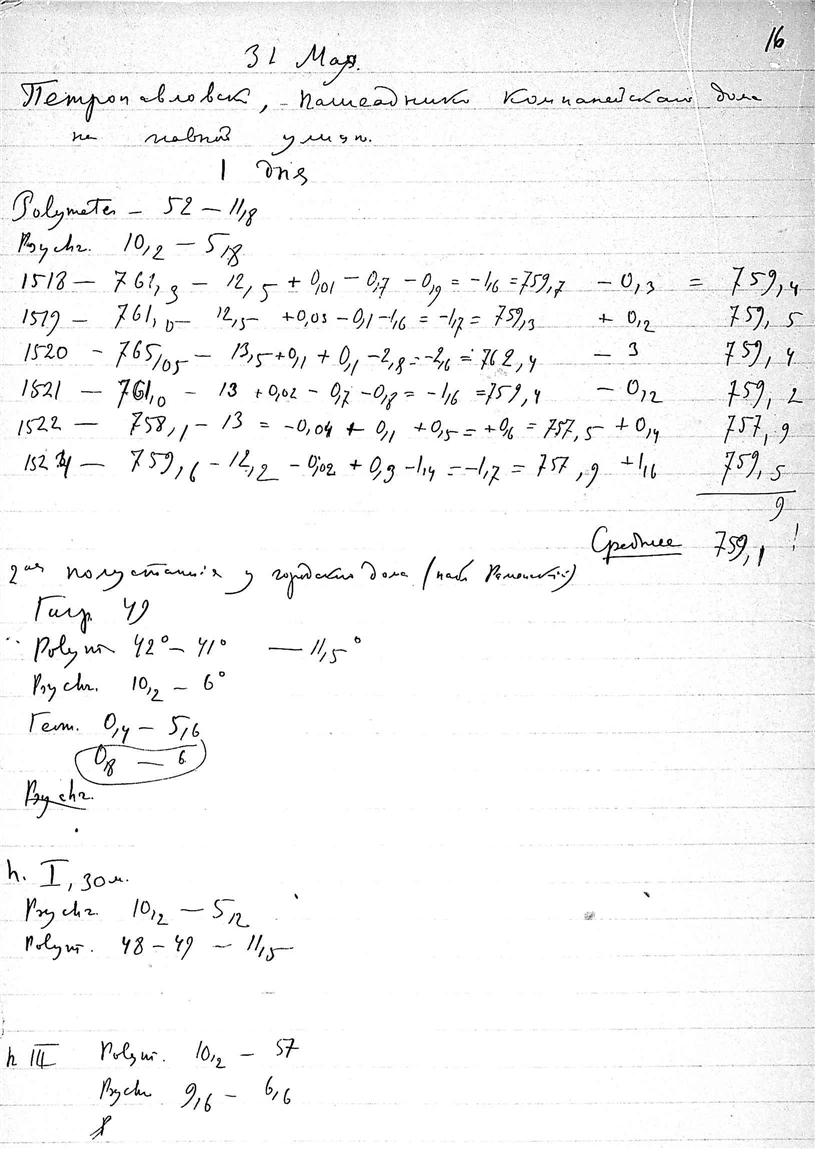 16
31 Мар.
Петропавловск, – палисадника Компанейскаго дома
на главной улицѣ.
1 дня
Polymeter – 52 – 11,8
Psychr. 10,2 – 5,8
1518 – 761,3 – 12,5 + 0,01 – 0,7 – 0,9 = –1,6 = 759,7 – 0,3 = 759,4
1519 – 761,0 – 12,5 – +0,03 – 0,1 – 1,6 = –1,7 = 759,3 + 0,2 759,5
1520 – 765,05 – 13,5 + 0,1 + 0,1 – 2,8 = –2,6 = 762,4 – 3 759,4
1521 – 761,0 – 13 + 0,02 – 0,7 – 0,8 = –1,6 = 759,4 – 0,2 759,2
1522 – 758,1 – 13 = –0,04 + 0,1 + 0,5 = +0,6 = 757,5 + 0,4 757,9
1524 – 759,6 – 12,2 – 0,02 + 0,3 – 1,4 = –1,7 = 757,9 + 1,6 759,5
9
Среднее 759,1 !
2ая у городского дома
Гигр. 49
Polym 42° – 41° — 11,5°
Psychr. 10,2 – 6°
Геом. 0,4 – 5,6
0,8 — 6
Psychr.
h. I, 30 м.
Psychr. 10,2 – 5,2
Polym. 48 – 49 – 11,5
h III Polym. 10,2 – 57
Psychr 9,6 – 6,6